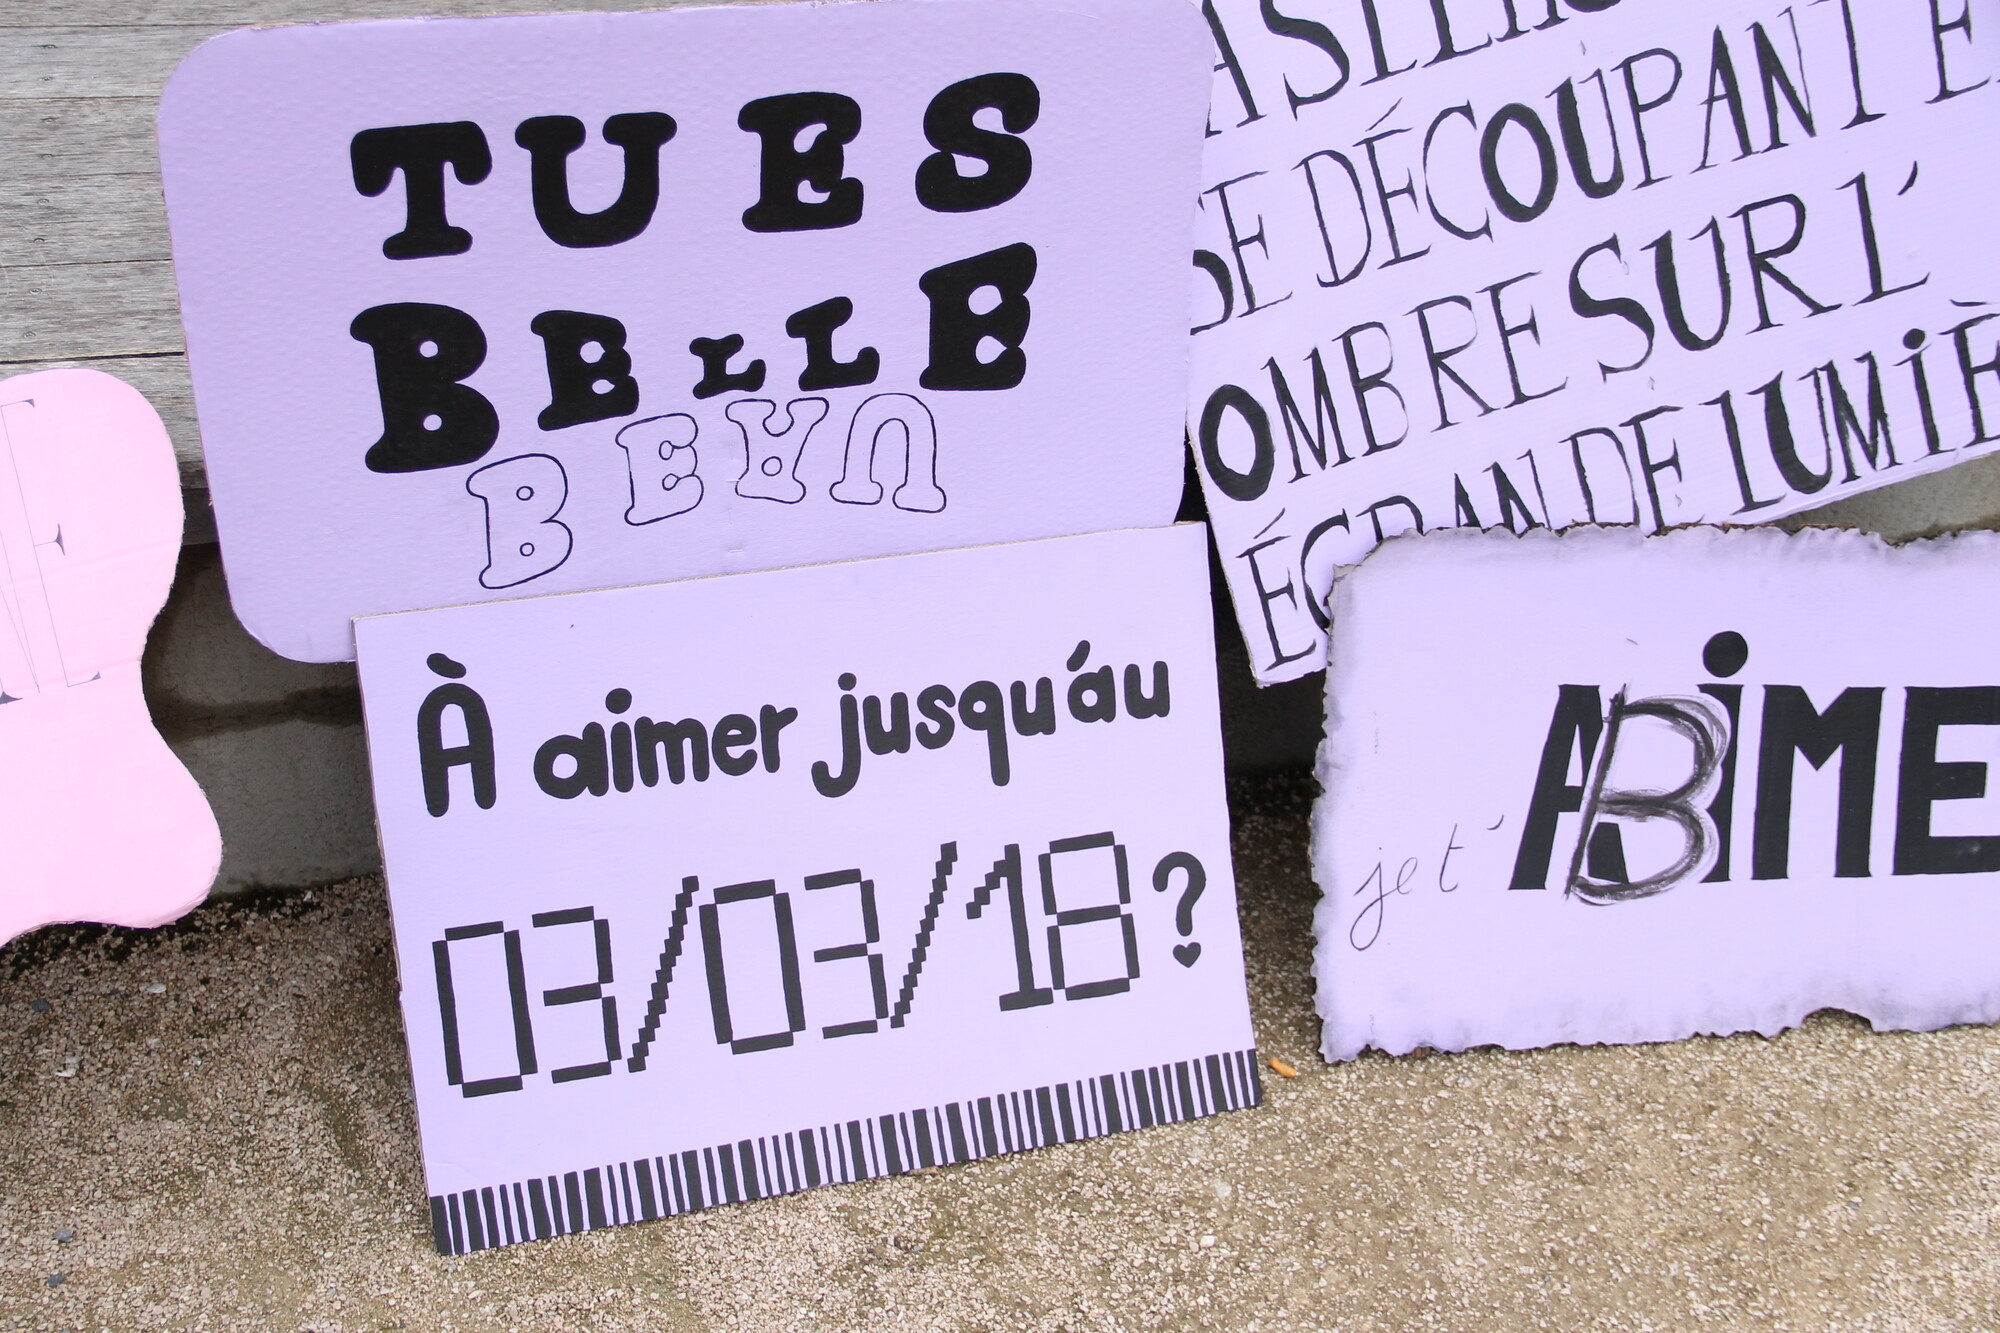 TU ES
BELLE
BEAU
À aimer jusqu'au
03/03/18?
SE DÉCOUPANT E
OMBRE SUR L'
ÉCRAN DE LUMIÈ
je t'ABiME